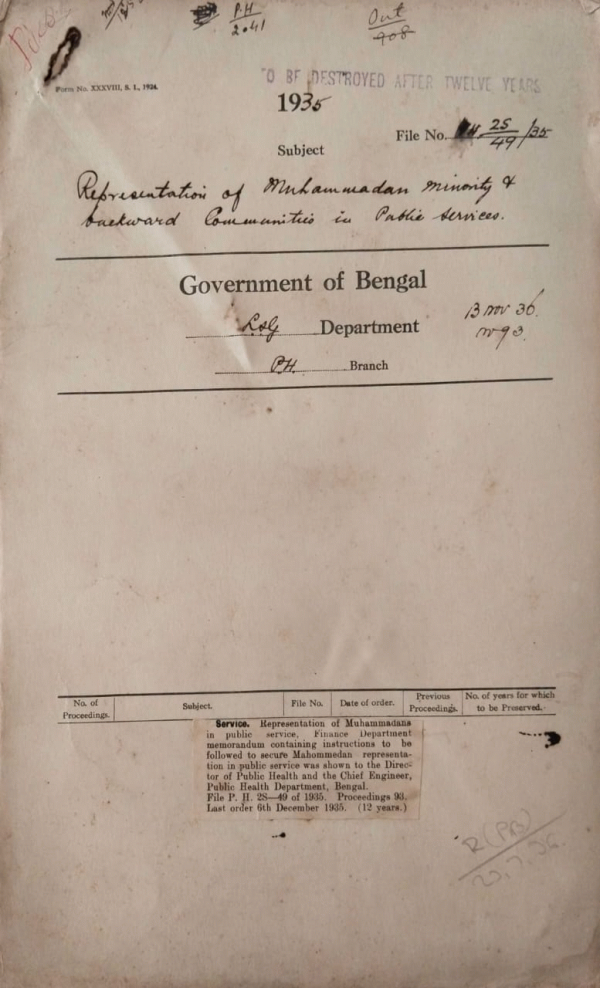 P.H
2041
Out
408
Form No. XXXVIII, S. I., 1924.
TO BE DESTROYED AFTER TWELVE YEARS
1935
File No. 25/49/35
Subject
Representation of Muhammadan minority &
backward Communities in Public Services.
Government of Bengal
L.S.G Department
13 nov 36.
93.
P.H. Branch
No. of Proceedings. Subject. File No. Date of order. Previous Proceedings. No. of years for which to be Preserved.
Service. Representation of Muhammadans
in public service, Finance Department
memorandum containing instructions to be
followed to secure Mahommedan representa-
tion in public service was shown to the Direc-
tor of Public Health and the Chief Engineer,
Public Health Department, Bengal.
File P. H. 2S—49 of 1935. Proceedings 93.
Last order 6th December 1935. (12 years.)